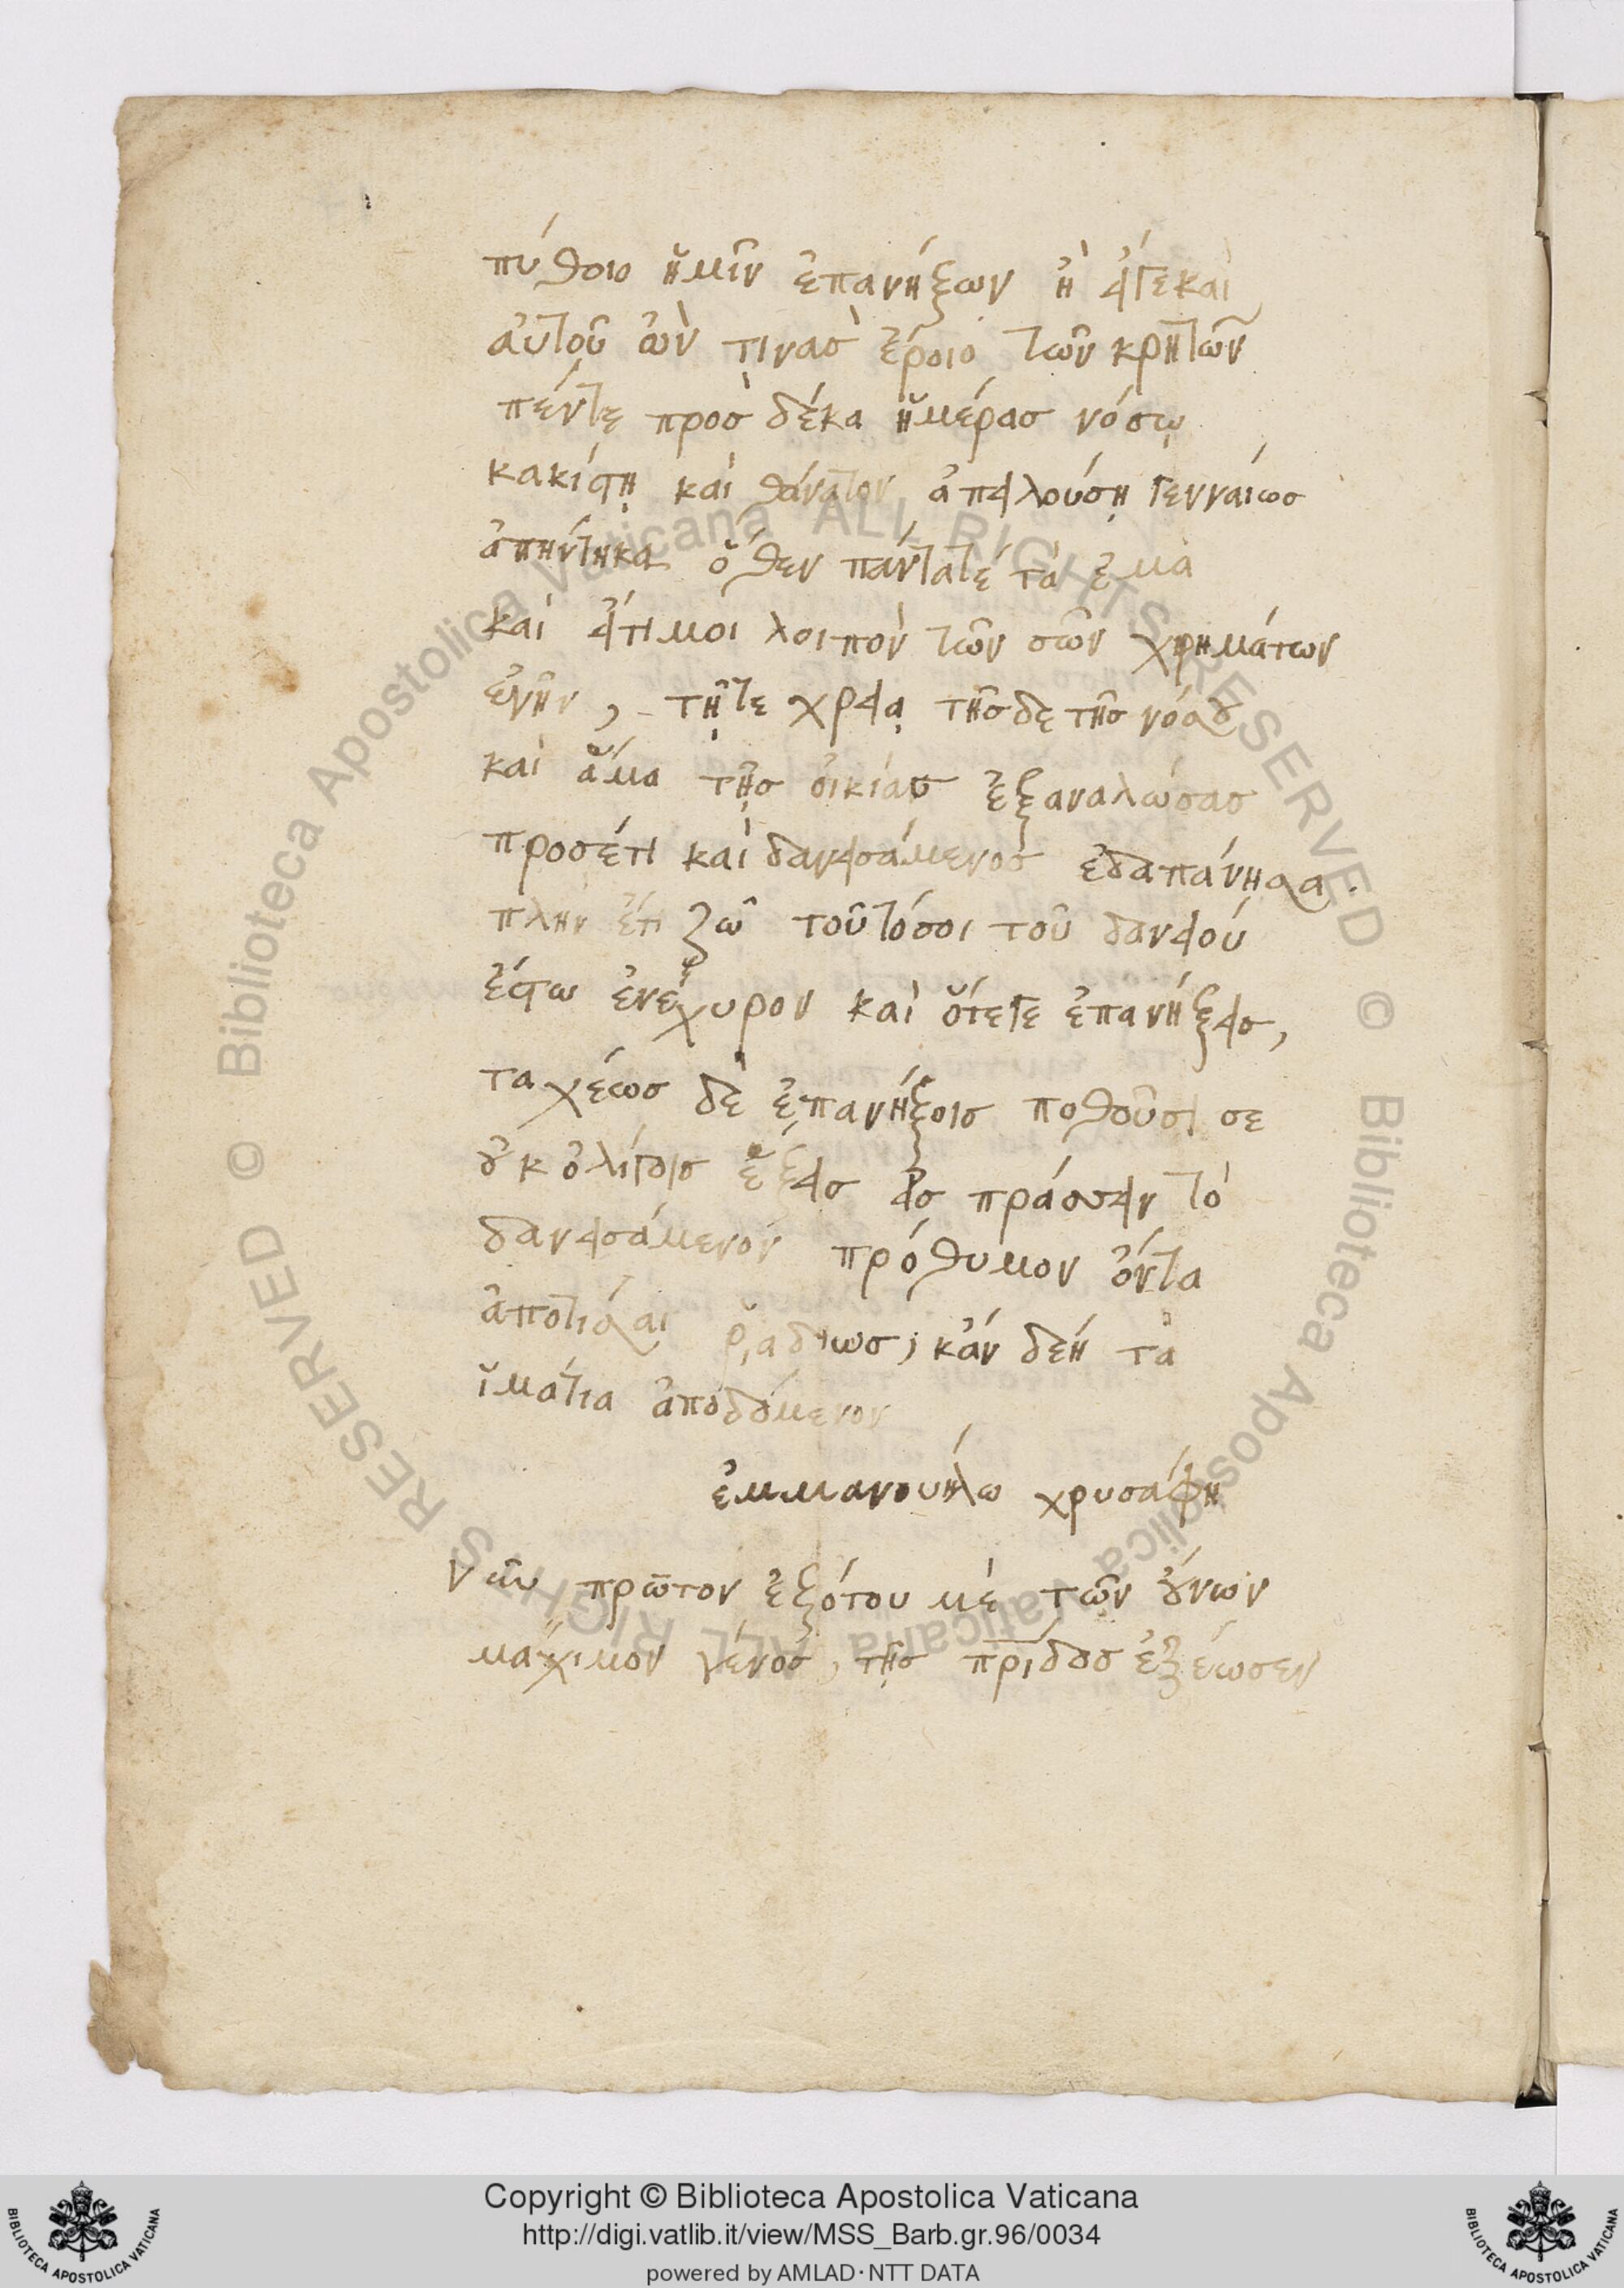 πύθοιο ἡμῖν ἐπανήξων ἢ εἴγε καὶ
αὐτοῦ ὢν τινὰσ ἔροιο τῶν κρητῶν
πέντε πρὸσ δέκα ἡμέρασ νόσω
κακίστη καὶ θάνατον ἀπειλούση γενναίωσ
ἀπήντηκα ὅθεν πάντα τέ τὰ ἐμὰ
καὶ εἴ τι μοι λοιπὸν τῶν σῶν χρημάτων
ἐνῆν, τῆ τε χρεία τῆσδε τῆσ νόσου
καὶ ἅμα τῆσ οἰκίασ ἐξαναλώσασ
προσέτι καὶ δανεισάμενοσ ἐδαπάνησα.
πλὴν ἔτι ζῶ τοῦτό σοι τοῦ δανείου
ἔστω ἐνέχυρον καὶ ὅτε γε ἐπανήξεισ,
ταχέωσ δὲ ἐπανήξοισ ποθοῦσι σε
οὐκ ὀλίγοισ ἕξεισ εἰσ πράσσειν τὸ
δανεισάμενον πρόθυμον ὄντα
ἀποτίσαι ῥαδίωσ, κἂν δέη τὰ
ἱμάτια ἀποδόμενον
ἐμμανουήλω χρυσάφη
Νῦν πρῶτον ἐξότου μὲ τῶν οὕνων
μάχιμον γένοσ, τῆσ πρίδοσ ἐξέωσεν
Copyright © Biblioteca Apostolica Vaticana
http://digi.vatlib.it/view/MSS_Barb.gr.96/0034
powered by AMLAD·NTT DATA
BIBLIOTECA APOSTOLICA VATICANA
BIBLIOTECA APOSTOLICA VATICANA
© Biblioteca Apostolica Vaticana ALL RIGHTS RESERVED
© Biblioteca Apostolica Vaticana ALL RIGHTS RESERVED